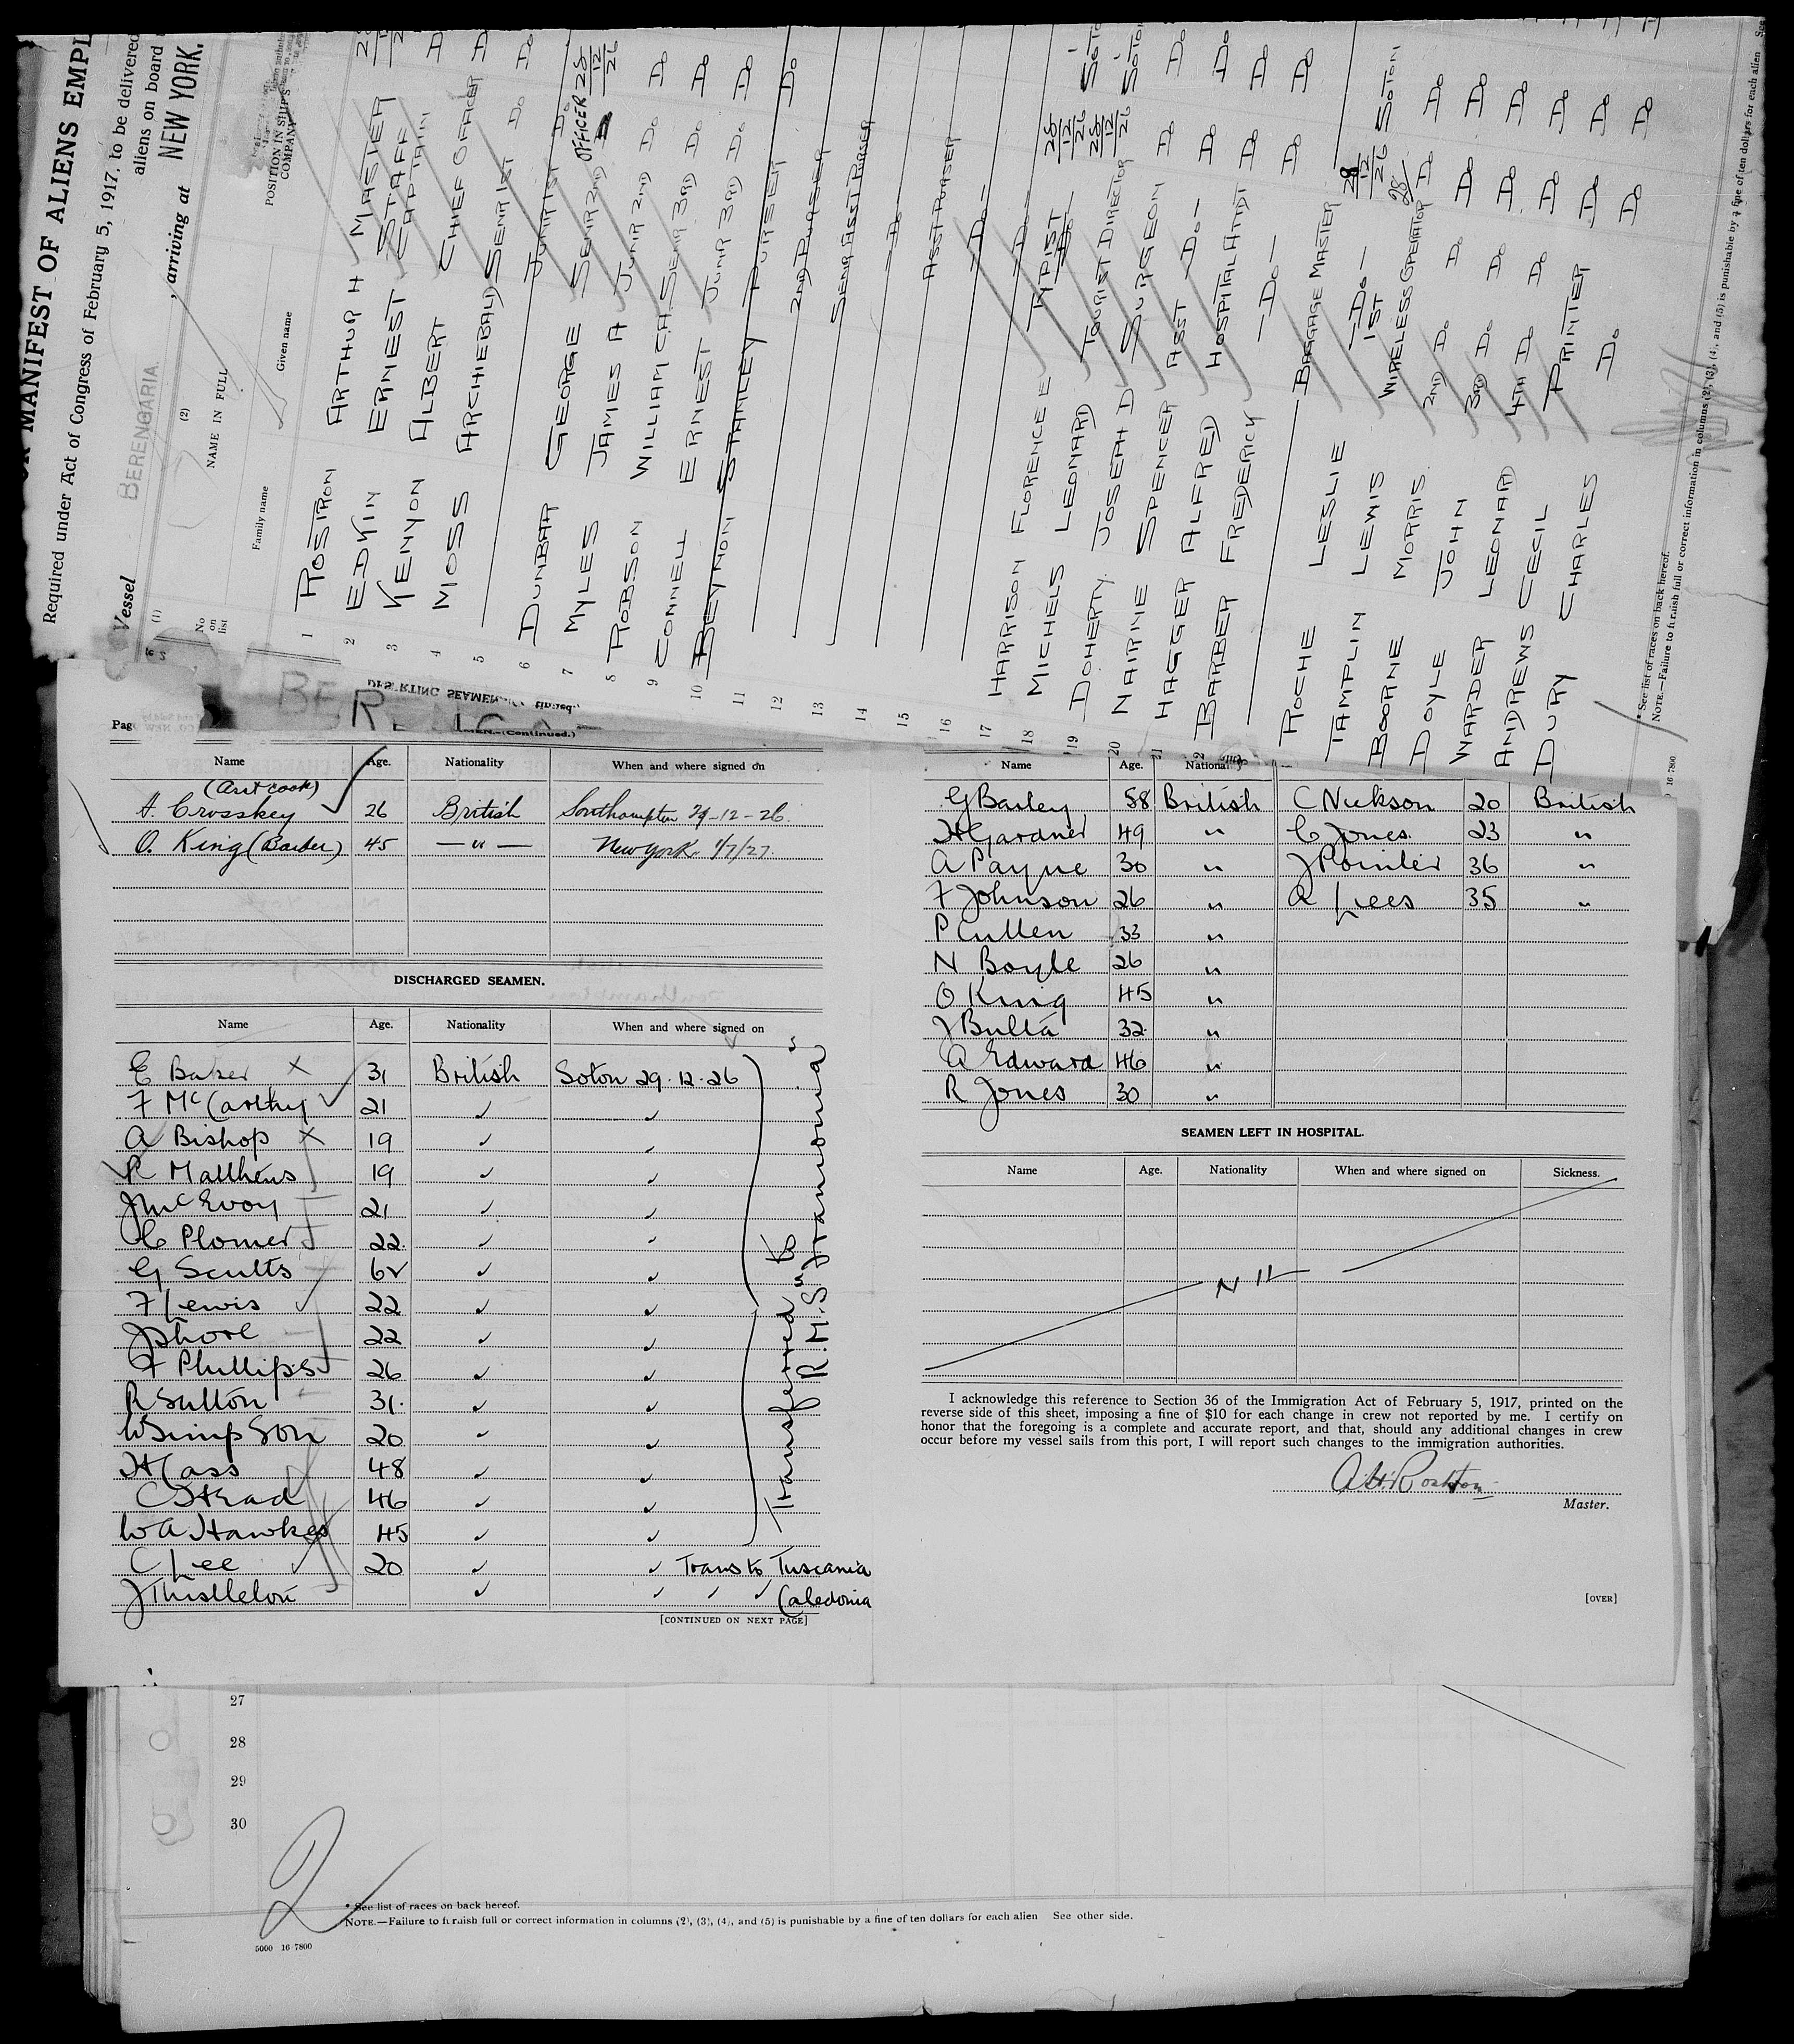 OR MANIFEST OF ALIENS EMPL
Required under Act of Congress of February 5, 1917, to be delivered
aliens on board
Vessel BERENGARIA. , arriving at NEW YORK.
(1) (2)
No on list
NAME IN FULL
Family name Given name
POSITION IN SHIP'S COMPANY
1 ROSTRON ARTHUR H MASTER
2 EDKIN ERNEST STAFF CAPTAIN
3 KENYON ALBERT CHIEF OFFICER Do
4 MOSS ARCHIEBALD SENR 1ST Do Do
5 JUNR 1ST Do
6 DUNBAR GEORGE SENR 2ND OFFICER 28/12/26
7 MYLES JAMES A JUNR 2ND Do Do
8 ROBSON WILLIAM C.A. SENR 3RD Do Do
9 CONNELL ERNEST JUNR 3RD Do Do
10 BEYNON STANLEY PURSER Do
11 2ND PURSER
12 SENR ASST PURSER
13 -Do-
14 ASST PURSER
15 -Do-
16 -Do-
17 HARRISON FLORENCE E TYPIST 28/12/26 SOTON
18 MICHELS LEONARD -Do- 28/12/26 SOTON
19 DOHERTY JOSEPH D TOURIST DIRECTOR Do Do
20 NAIRNE SPENCER SURGEON Do Do
21 HAGGER ALFRED ASST -Do- Do Do
22 BARBER FREDERICK HOSPITAL ATTDT Do Do
-Do-
ROCHE LESLIE BAGGAGE MASTER 28/12/26 SOTON
TAMPLIN LEWIS -Do- Do Do
BOORNE MORRIS 1ST WIRELESS OPERATOR Do Do
DOYLE JOHN 2ND Do Do Do
WARDER LEONARD 3RD Do Do Do
ANDREWS CECIL 4TH Do Do Do
DURY CHARLES PRINTER Do Do
Do
* See list of races on back hereof.
NOTE.—Failure to furnish full or correct information in columns (2), (3), (4), and (5) is punishable by a fine of ten dollars for each alien See
16 7800
DESERTING SEAMEN
MEN.—(Continued.)
Name Age. Nationality When and where signed on
(Asst cook)
A. Crosskey 26 British Southampton 29-12-26.
O. King (Barber) 45 — " — New York 1/7/27.
DISCHARGED SEAMEN.
Name Age. Nationality When and where signed on
E Baker X 31 British Soton 29.12.26
F McCarthy 21 ✓ ✓
A Bishop X 19 ✓ ✓
R Matthews 19 ✓ ✓
J McEvoy 21 ✓ ✓
C Plomer 22. ✓ ✓
G Scutts 62 ✓ ✓
F Lewis 22 ✓ ✓
J Shore 22 ✓ ✓
F Phillips 26 ✓ ✓
R Sutton 31. ✓ ✓
W Simpson 20 ✓ ✓
H Cass 48 ✓ ✓
C Stead 46 ✓ ✓
W A Hawkes 45 ✓ ✓
Transferred to
R.M.S "Franconia"
C Lee 20 ✓ ✓ Trans to Tuscania
J Thistleton ✓ ✓ ✓ ✓ Caledonia
[CONTINUED ON NEXT PAGE]
Name Age. Nationality
G Bailey 58 British C Nickson 20 British
H Gardner 49 " C Jones. 23 "
A Payne 30 " J Pointer 36 "
F Johnson 26 " A Lees 35 "
P Cullen 33 "
N Boyle 26 "
O King 45 "
J Bulla 32. "
A Edward 46 "
R Jones 30 "
SEAMEN LEFT IN HOSPITAL.
Name Age. Nationality When and where signed on Sickness.
Nil
I acknowledge this reference to Section 36 of the Immigration Act of February 5, 1917, printed on the
reverse side of this sheet, imposing a fine of $10 for each change in crew not reported by me. I certify on
honor that the foregoing is a complete and accurate report, and that, should any additional changes in crew
occur before my vessel sails from this port, I will report such changes to the immigration authorities.
A.H. Rostron
Master.
[OVER]
27
28
29
30
2
* See list of races on back hereof.
NOTE.—Failure to furnish full or correct information in columns (2), (3), (4), and (5) is punishable by a fine of ten dollars for each alien See other side.
5000 16 7800